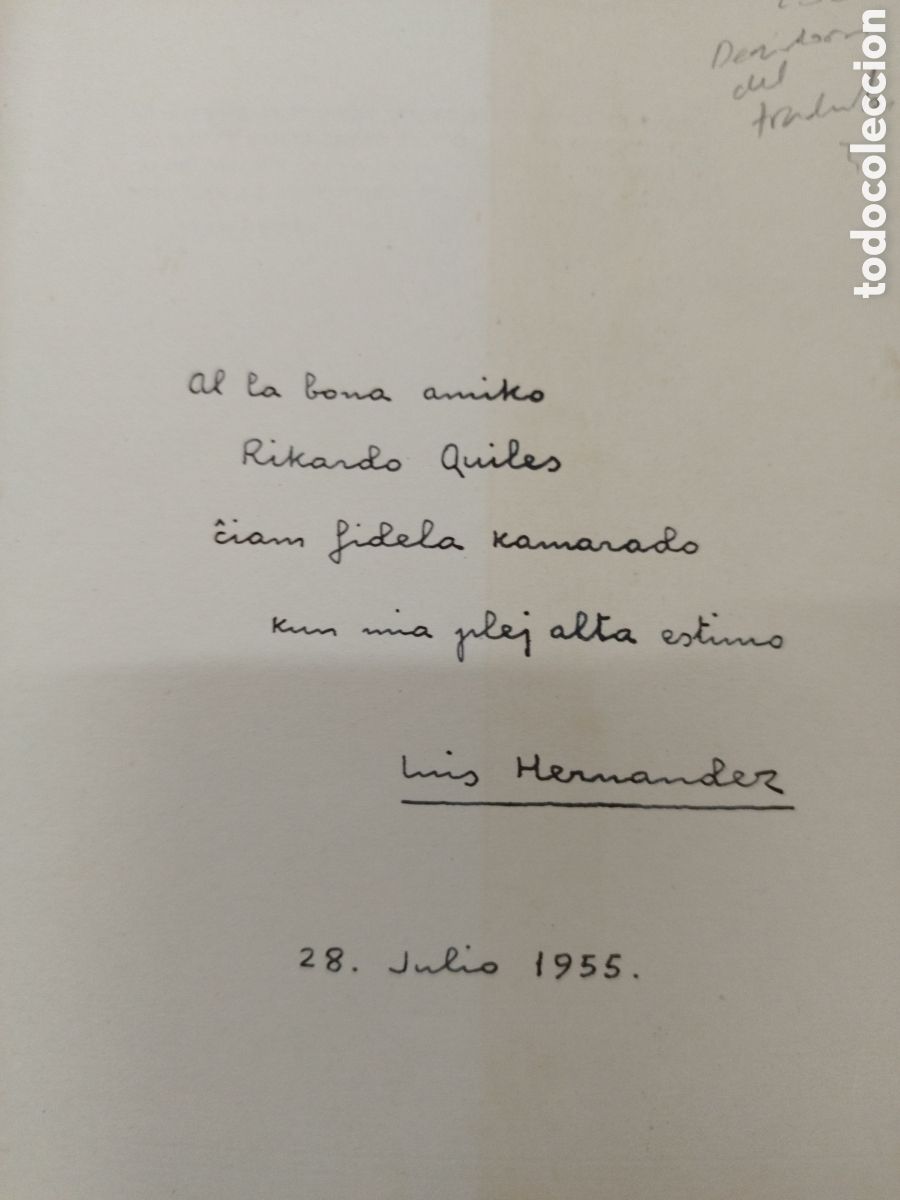 del
todocoleccion
Al la bona amiko
Rikardo Quiles
ĉiam fidela kamarado
kun mia plej alta estimo
Luis Hernandez
28. Julio 1955.